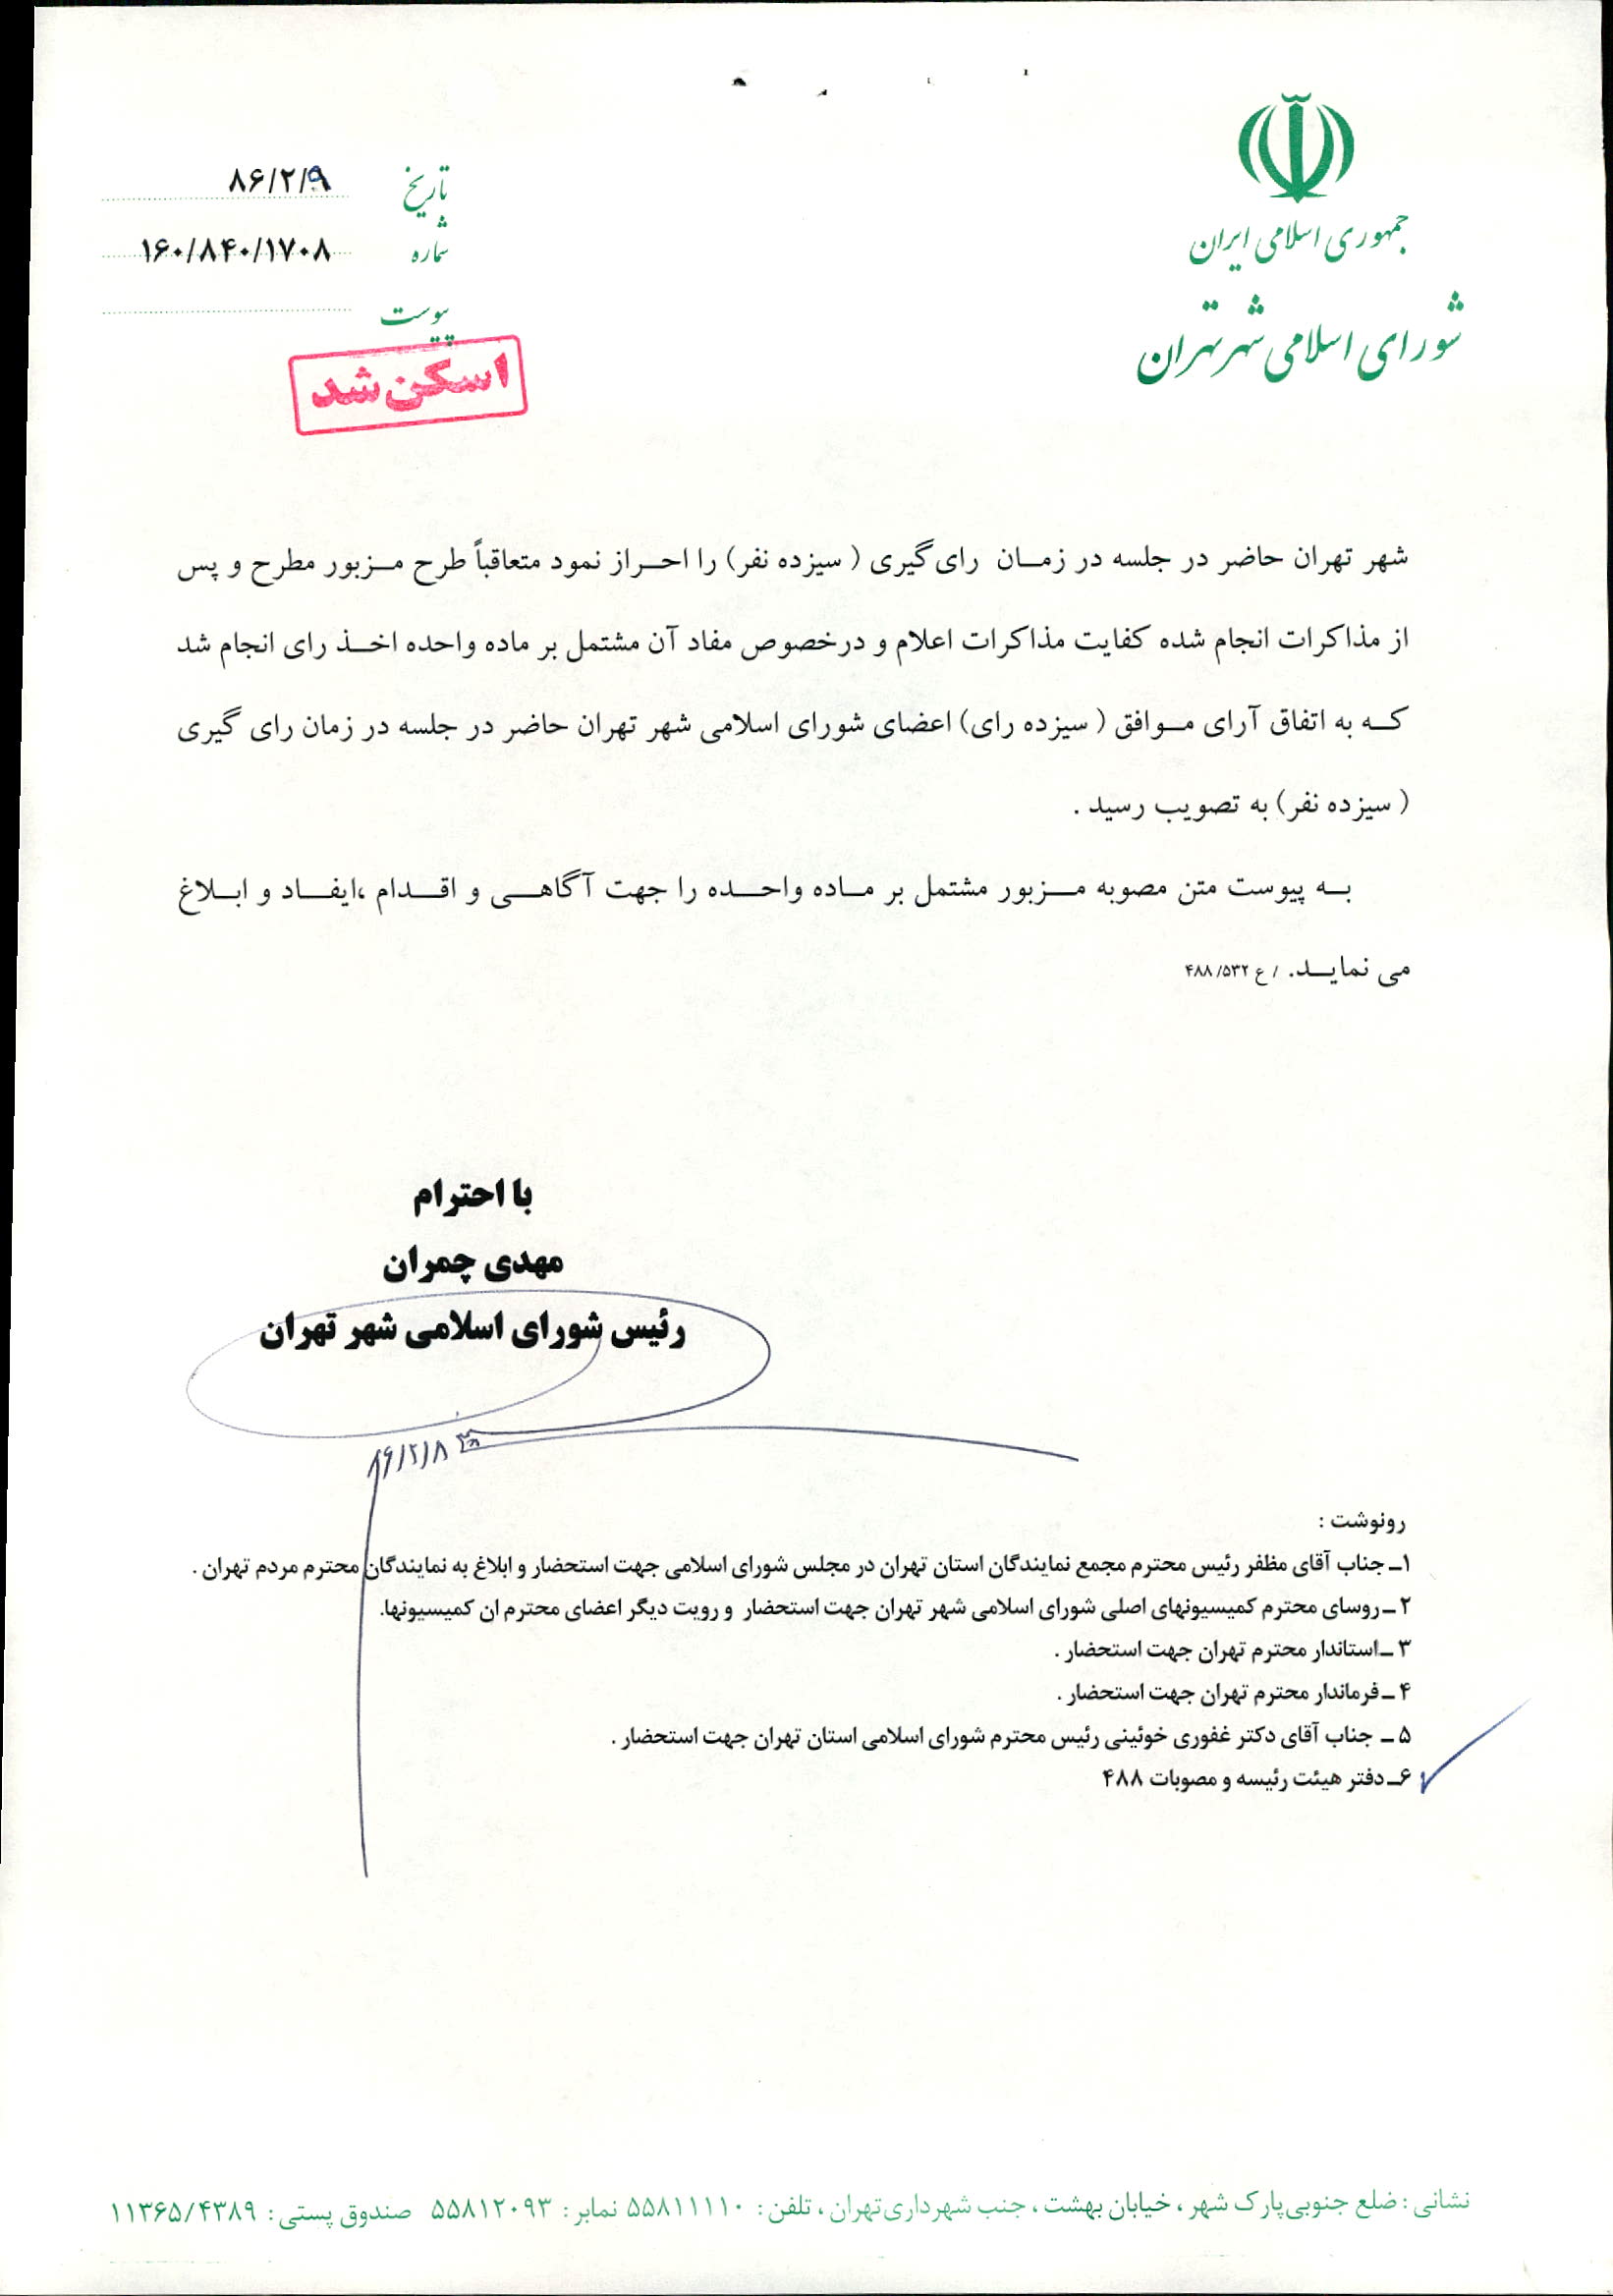 جمهوری اسلامی ایران
شورای اسلامی شهر تهران
تاریخ ۸۶/۲/۹
شماره ۱۶۰/۸۴۰/۱۷۰۸
پیوست
اسکن شد
شهر تهران حاضر در جلسه در زمان رای گیری ( سیزده نفر) را احراز نمود متعاقباً طرح مزبور مطرح و پس
از مذاکرات انجام شده کفایت مذاکرات اعلام و درخصوص مفاد آن مشتمل بر ماده واحده اخذ رای انجام شد
که به اتفاق آرای موافق ( سیزده رای) اعضای شورای اسلامی شهر تهران حاضر در جلسه در زمان رای گیری
( سیزده نفر) به تصویب رسید .
به پیوست متن مصوبه مزبور مشتمل بر ماده واحده را جهت آگاهی و اقدام ،ایفاد و ابلاغ
می نماید. / ع ۴۸۸/۵۳۲
با احترام
مهدی چمران
رئیس شورای اسلامی شهر تهران
۸۶/۲/۸
رونوشت :
۱ـ جناب آقای مظفر رئیس محترم مجمع نمایندگان استان تهران در مجلس شورای اسلامی جهت استحضار و ابلاغ به نمایندگان محترم مردم تهران .
۲ ـ روسای محترم کمیسیونهای اصلی شورای اسلامی شهر تهران جهت استحضار و رویت دیگر اعضای محترم ان کمیسیونها.
۳ ـ استاندار محترم تهران جهت استحضار .
۴ ـ فرماندار محترم تهران جهت استحضار .
۵ ـ جناب آقای دکتر غفوری خوئینی رئیس محترم شورای اسلامی استان تهران جهت استحضار .
۶ـ دفتر هیئت رئیسه و مصوبات ۴۸۸
نشانی : ضلع جنوبی پارک شهر ، خیابان بهشت ، جنب شهرداری تهران ، تلفن : ۵۵۸۱۱۱۱۰ نمابر : ۵۵۸۱۲۰۹۳ صندوق پستی : ۱۱۳۶۵/۴۳۸۹